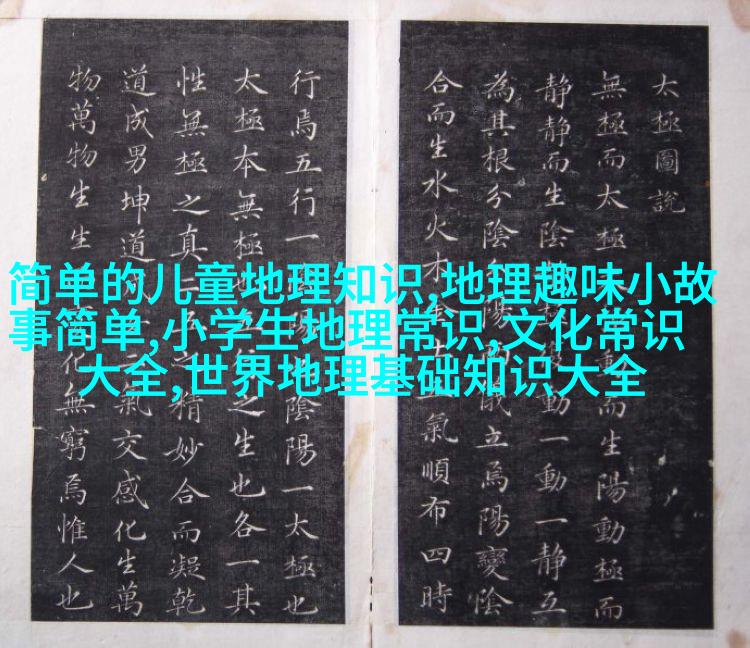 简单的儿童地理知识,地理趣味小故
事简单,小学生地理常识,文化常识
大全,世界地理基础知识大全
太極圖說
無極而太極動而生陽動極而
静静而生陰動一動一静互
為其根分陰陽儀立焉陽變陰
合而生水火木氣順布四時
行焉五行一陰陽一太極也
太極本無極也之生也各一其
性無極之真精妙合而凝乾
道成男坤道氣交感化生萬
物萬物生生化無窮焉惟人也